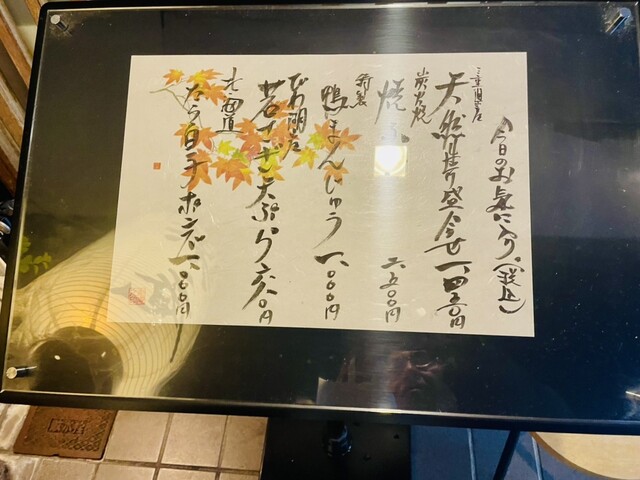 今日のお気に入り。(税込)
三重県産
天然
盛合せ 一、四五〇円
炭火焼
焼
二、五〇〇円
特製
鴨まんじゅう 一、〇〇〇円
びわ湖産
天ぷら
円
北海道
たら白子ポン酢 一、〇〇〇円